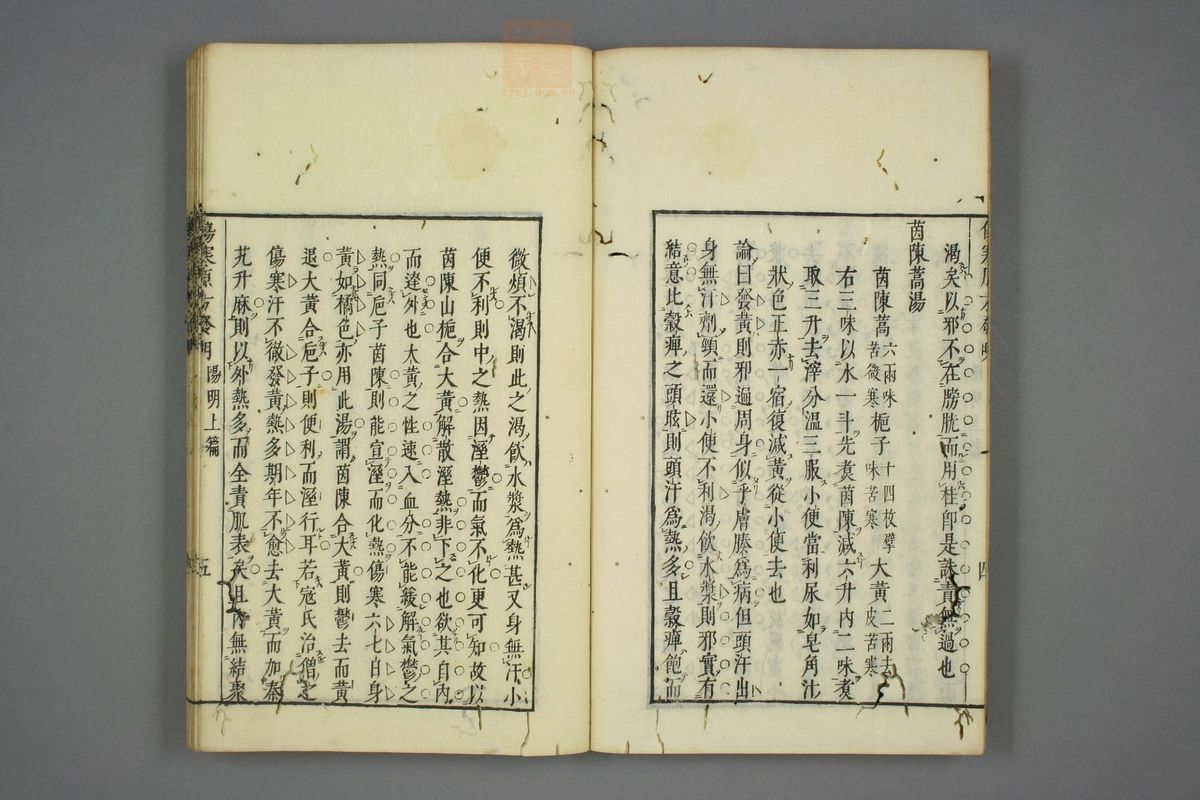 渴矣以邪不在膀胱而用桂卽是誅責無過也
茵陳蒿湯
茵陳蒿六兩味苦微寒梔子十四枚擘味苦寒大黃二兩去皮苦寒
右三味以水一斗先煑茵陳減六升内二味煑
取三升去滓分溫三服小便當利尿如皂角汁
狀色正赤一宿復減黃從小便去也
論曰發黃則邪遍周身似乎膚腠爲病但頭汗出
身無汗劑頸而還小便不利渴飮水漿則邪實有
結意此穀癉之頭眩則頭汗爲熱多且穀癉飽而
微煩不渴則此之渴飮水漿爲熱甚又身無汗小
便不利則中之熱因溼鬱而氣不化更可知故以
茵陳山梔合大黃解散溼熱非下之也欲其自内
而達外也大黃之性速入血分不能緩解氣鬱之
熱同梔子茵陳則能宣溼而化熱傷寒六七日身
黃如橘色亦用此湯謂茵陳合大黃則鬱去而黃
退大黃合梔子則便利而溼行耳若寇氏治僧之
傷寒汗不徹發黃熱多期年不愈去大黃而加秦
艽升麻則以外熱多而全責肌表矣且内無結聚
傷寒原方發明 陽明上篇 五
四